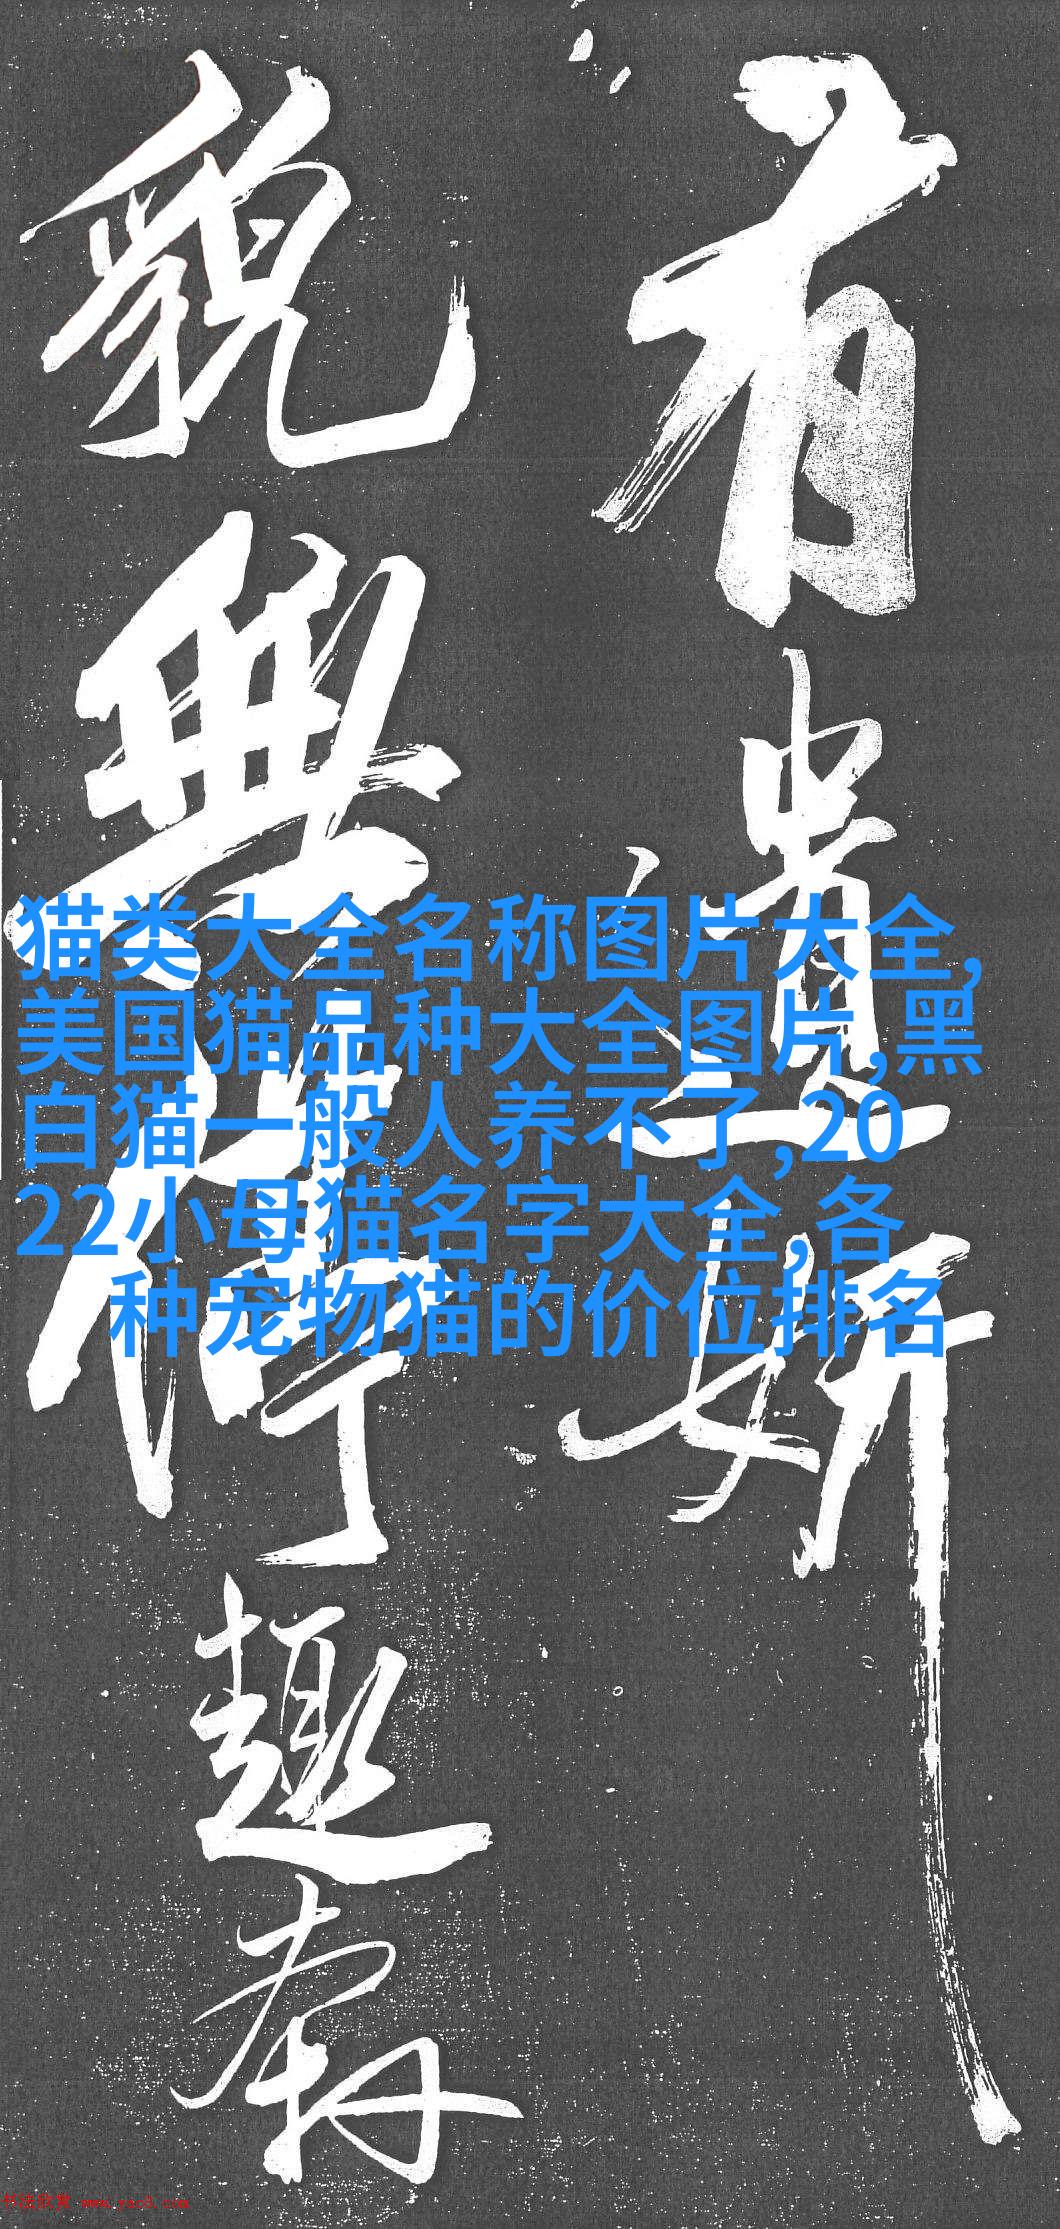 有遗妍
貌無停趣
猫类大全名称图片大全,
美国猫品种大全图片,黑
白猫一般人养不了,20
22小母猫名字大全,各
种宠物猫的价位排名
书法欣赏 www.yac8.com